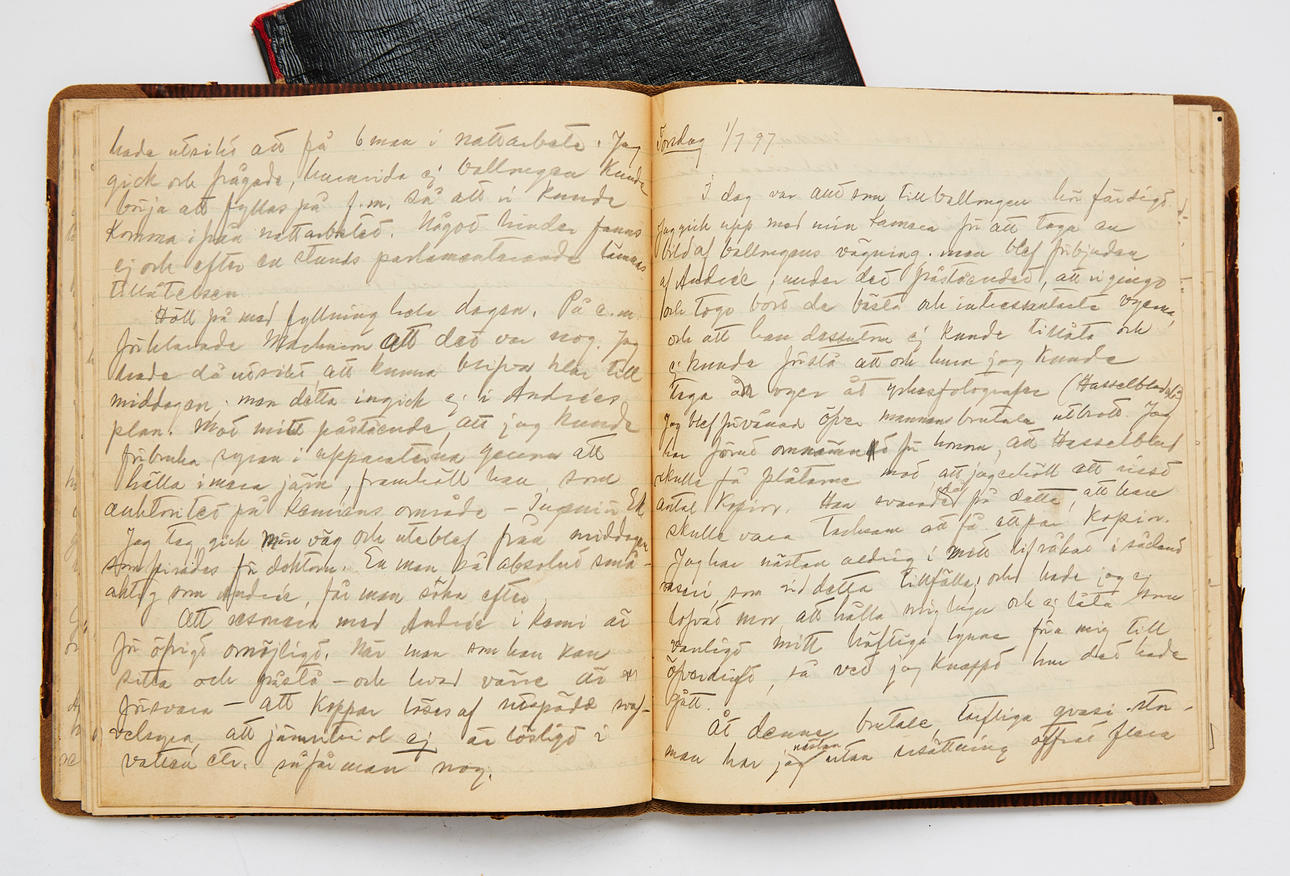 hade utsikt att få 6 man i nattarbete. Jag
gick och frågade, huruvida ej ballongen kunde
börja att fyllas på f.m. så att vi kunde
komma ifrån nattarbetet. Något hinder fanns
ej och efter en stunds parlamenterande lämnas
tillåtelsen
Höll på med fyllning hela dagen. På e.m.
förklarade Machuron att det var nog. Jag
hade då utsikt att kunna blifva klar till
middagen, men detta ingick ej i Andrées
plan. Mot mitt påstående, att jag kunde
förbruka syran i apparaterna genom att
hälla i mera järn, framhöll han som
auktoritet på kemiens område – Ingeniör Ek
Jag tog gick min väg och uteblef från middagen
som firades för doktorn. En man så absolut små-
aktig som Andrée får man söka efter
Att resonera med Andrée i kemi är
för öfrigt omöjligt. När man som han kan
sitta och påstå – och hvad värre är
försvara – att koppar löses af utspädd svaf-
velsyra, att järnvitriol ej är lösligt i
vatten etc. så får man nog.
Torsdag 1/7 97
I dag var allt som till ballongen hör färdigt.
Jag gick upp med min kamera för att taga en
bild af ballongens vägning. men blef förbjuden
af Andrée, under det påståendet, att vi gingo
och togo bort de bästa och intressantaste vyerna,
och att han dessutom ej kunde tillåta och
ej kunde förstå att och huru jag kunde
taga vyer åt yrkesfotografer (Hasselblad
Jag blef förvånad öfver mannens brutala utbrott. Jag
har förut omnämnt för honom, att Hasselblad
skulle få plåtarne mot att jag erhöll ett visst
antal kopior. Han svarade då på detta, att han
skulle vara tacksam att få ett par kopior.
Jag har nästan aldrig i mitt lif råkat i sådant
raseri, som vid detta tillfälle, och hade jag ej
lofvat mor att hålla mig lugn och ej låta som
vanligt mitt häftiga lynne föra mig till
öfverdrift, så vet jag knappt hur det hade
gått.
Åt denne brutale, tarfliga quasi-stor-
man har jag nästan utan ersättning offrat flera